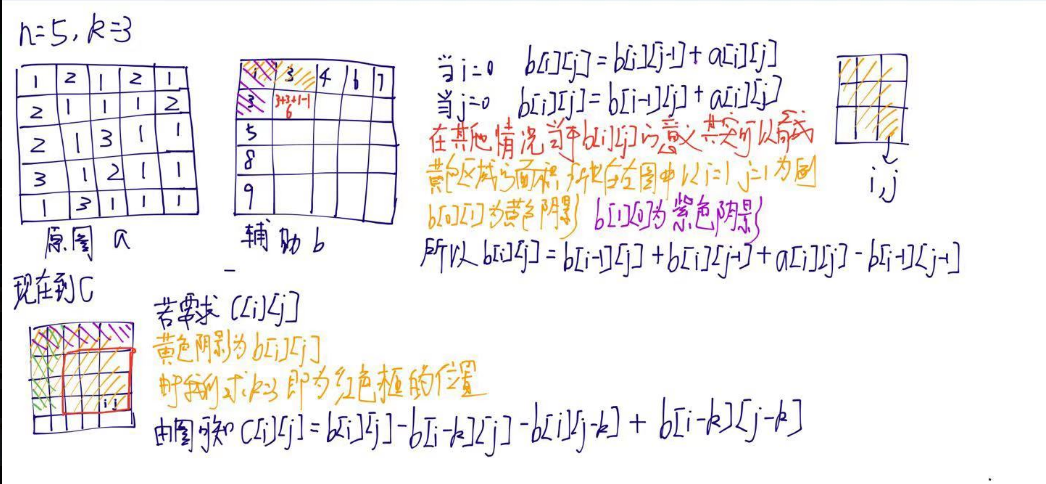 n=5, k=3
1 2 1 2 1
2 1 1 1 2
2 1 3 1 1
3 1 2 1 1
1 3 1 1 1
原图 a
1 3 4 6 7
3 3+3+1-1
6
5
8
9
辅助b
当i=0 b[i][j]=b[i][j-1]+a[i][j]
当j=0 b[i][j]=b[i-1][j]+a[i][j]
在其他情况当中b[i][j]的意义其实可以
黄色区域的面积 在左图中以i=1 j=1为
b[0][1]为黄色阴影 b[1][0]为紫色阴影
所以b[i][j]=b[i-1][j]+b[i][j-1]+a[i][j]-b[i-1][j-1]
i,j
现在到C
i j
若需求C[i][j]
黄色阴影为b[i][j]
k=3即为红色框的位置
由图可知C[i][j]=b[i][j]-b[i-k][j]-b[i][j-k]+b[i-k][j-k]